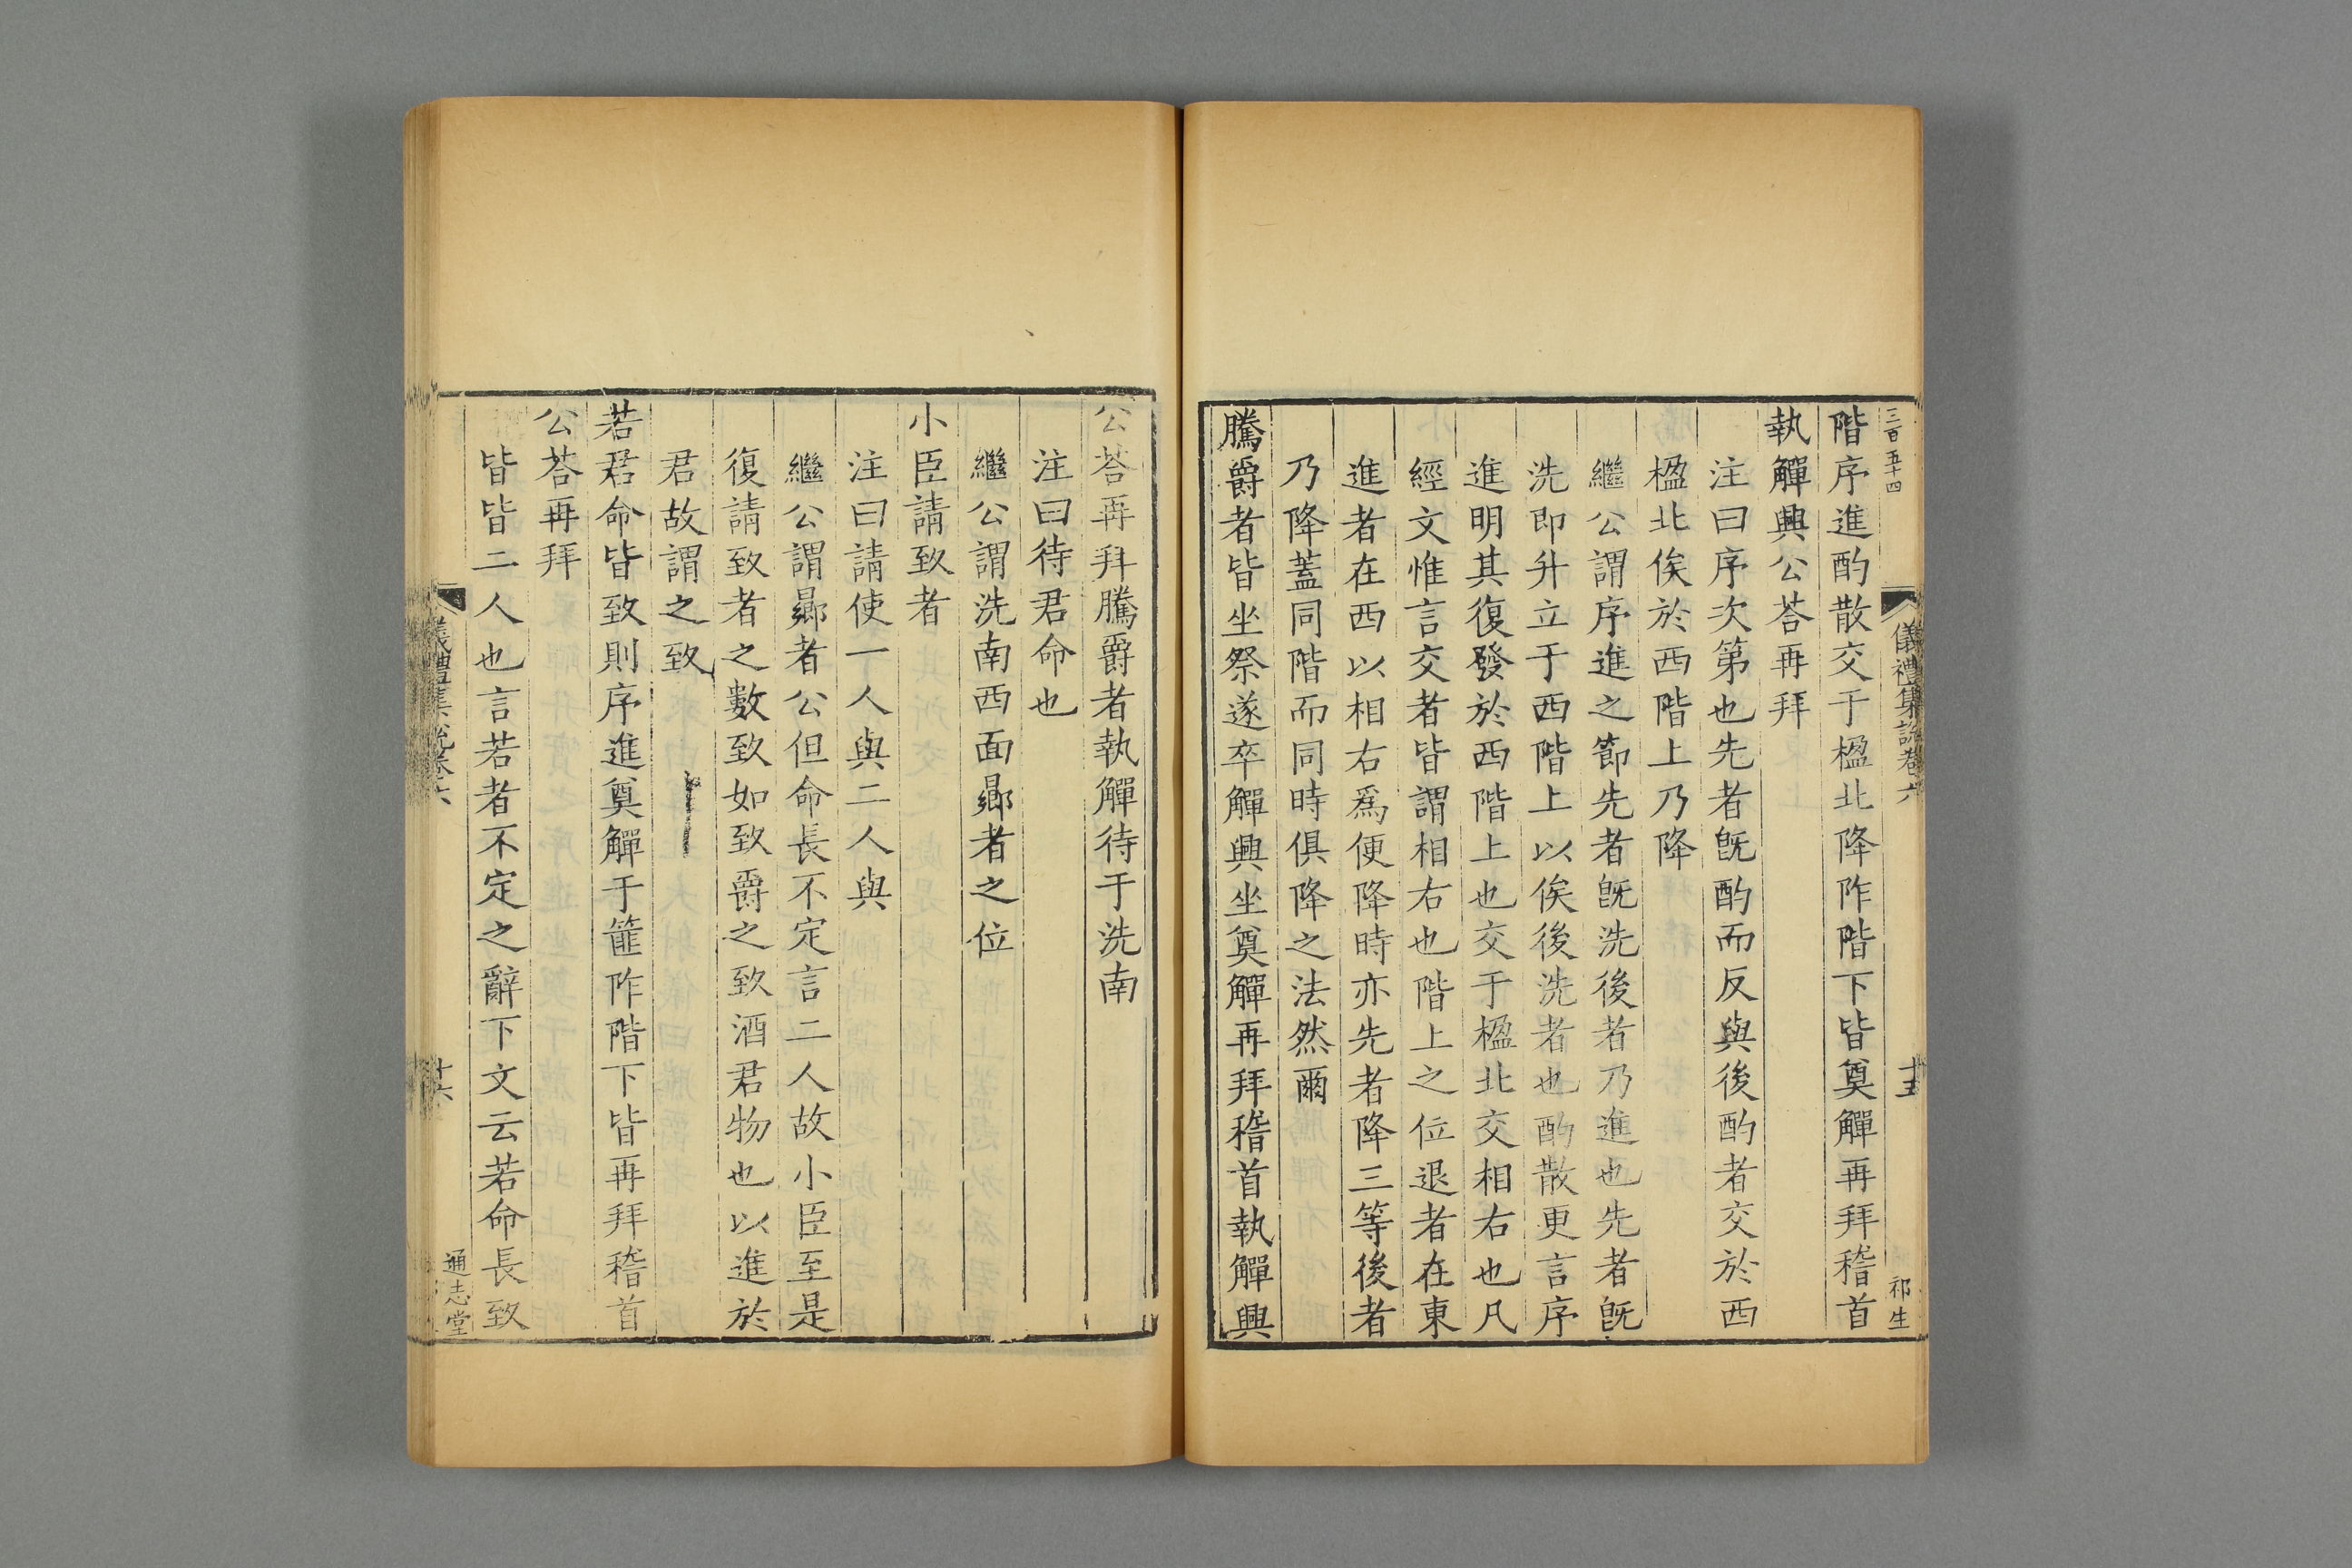 三百五十四
儀禮集說卷六
十五
祁生
階序進酌散交于楹北降阼階下皆奠觶再拜稽首
執觶興公荅再拜
注曰序次第也先者旣酌而反與後酌者交於西
楹北俟於西階上乃降
繼公謂序進之節先者旣洗後者乃進也先者旣
洗即升立于西階上以俟後洗者也酌散更言序
進明其復發於西階上也交于楹北交相右也凡
經文惟言交者皆謂相右也階上之位退者在東
進者在西以相右爲便降時亦先者降三等後者
乃降蓋同階而同時俱降之法然爾
騰爵者皆坐祭遂卒觶興坐奠觶再拜稽首執觶興
公荅再拜騰爵者執觶待于洗南
注曰待君命也
繼公謂洗南西面曏者之位
小臣請致者
注曰請使一人與二人與
繼公謂曏者公但命長不定言二人故小臣至是
復請致者之數致如致爵之致酒君物也以進於
君故謂之致
若君命皆致則序進奠觶于篚阼階下皆再拜稽首
公荅再拜
皆皆二人也言若者不定之辭下文云若命長致
儀禮集說卷六
十六
通志堂